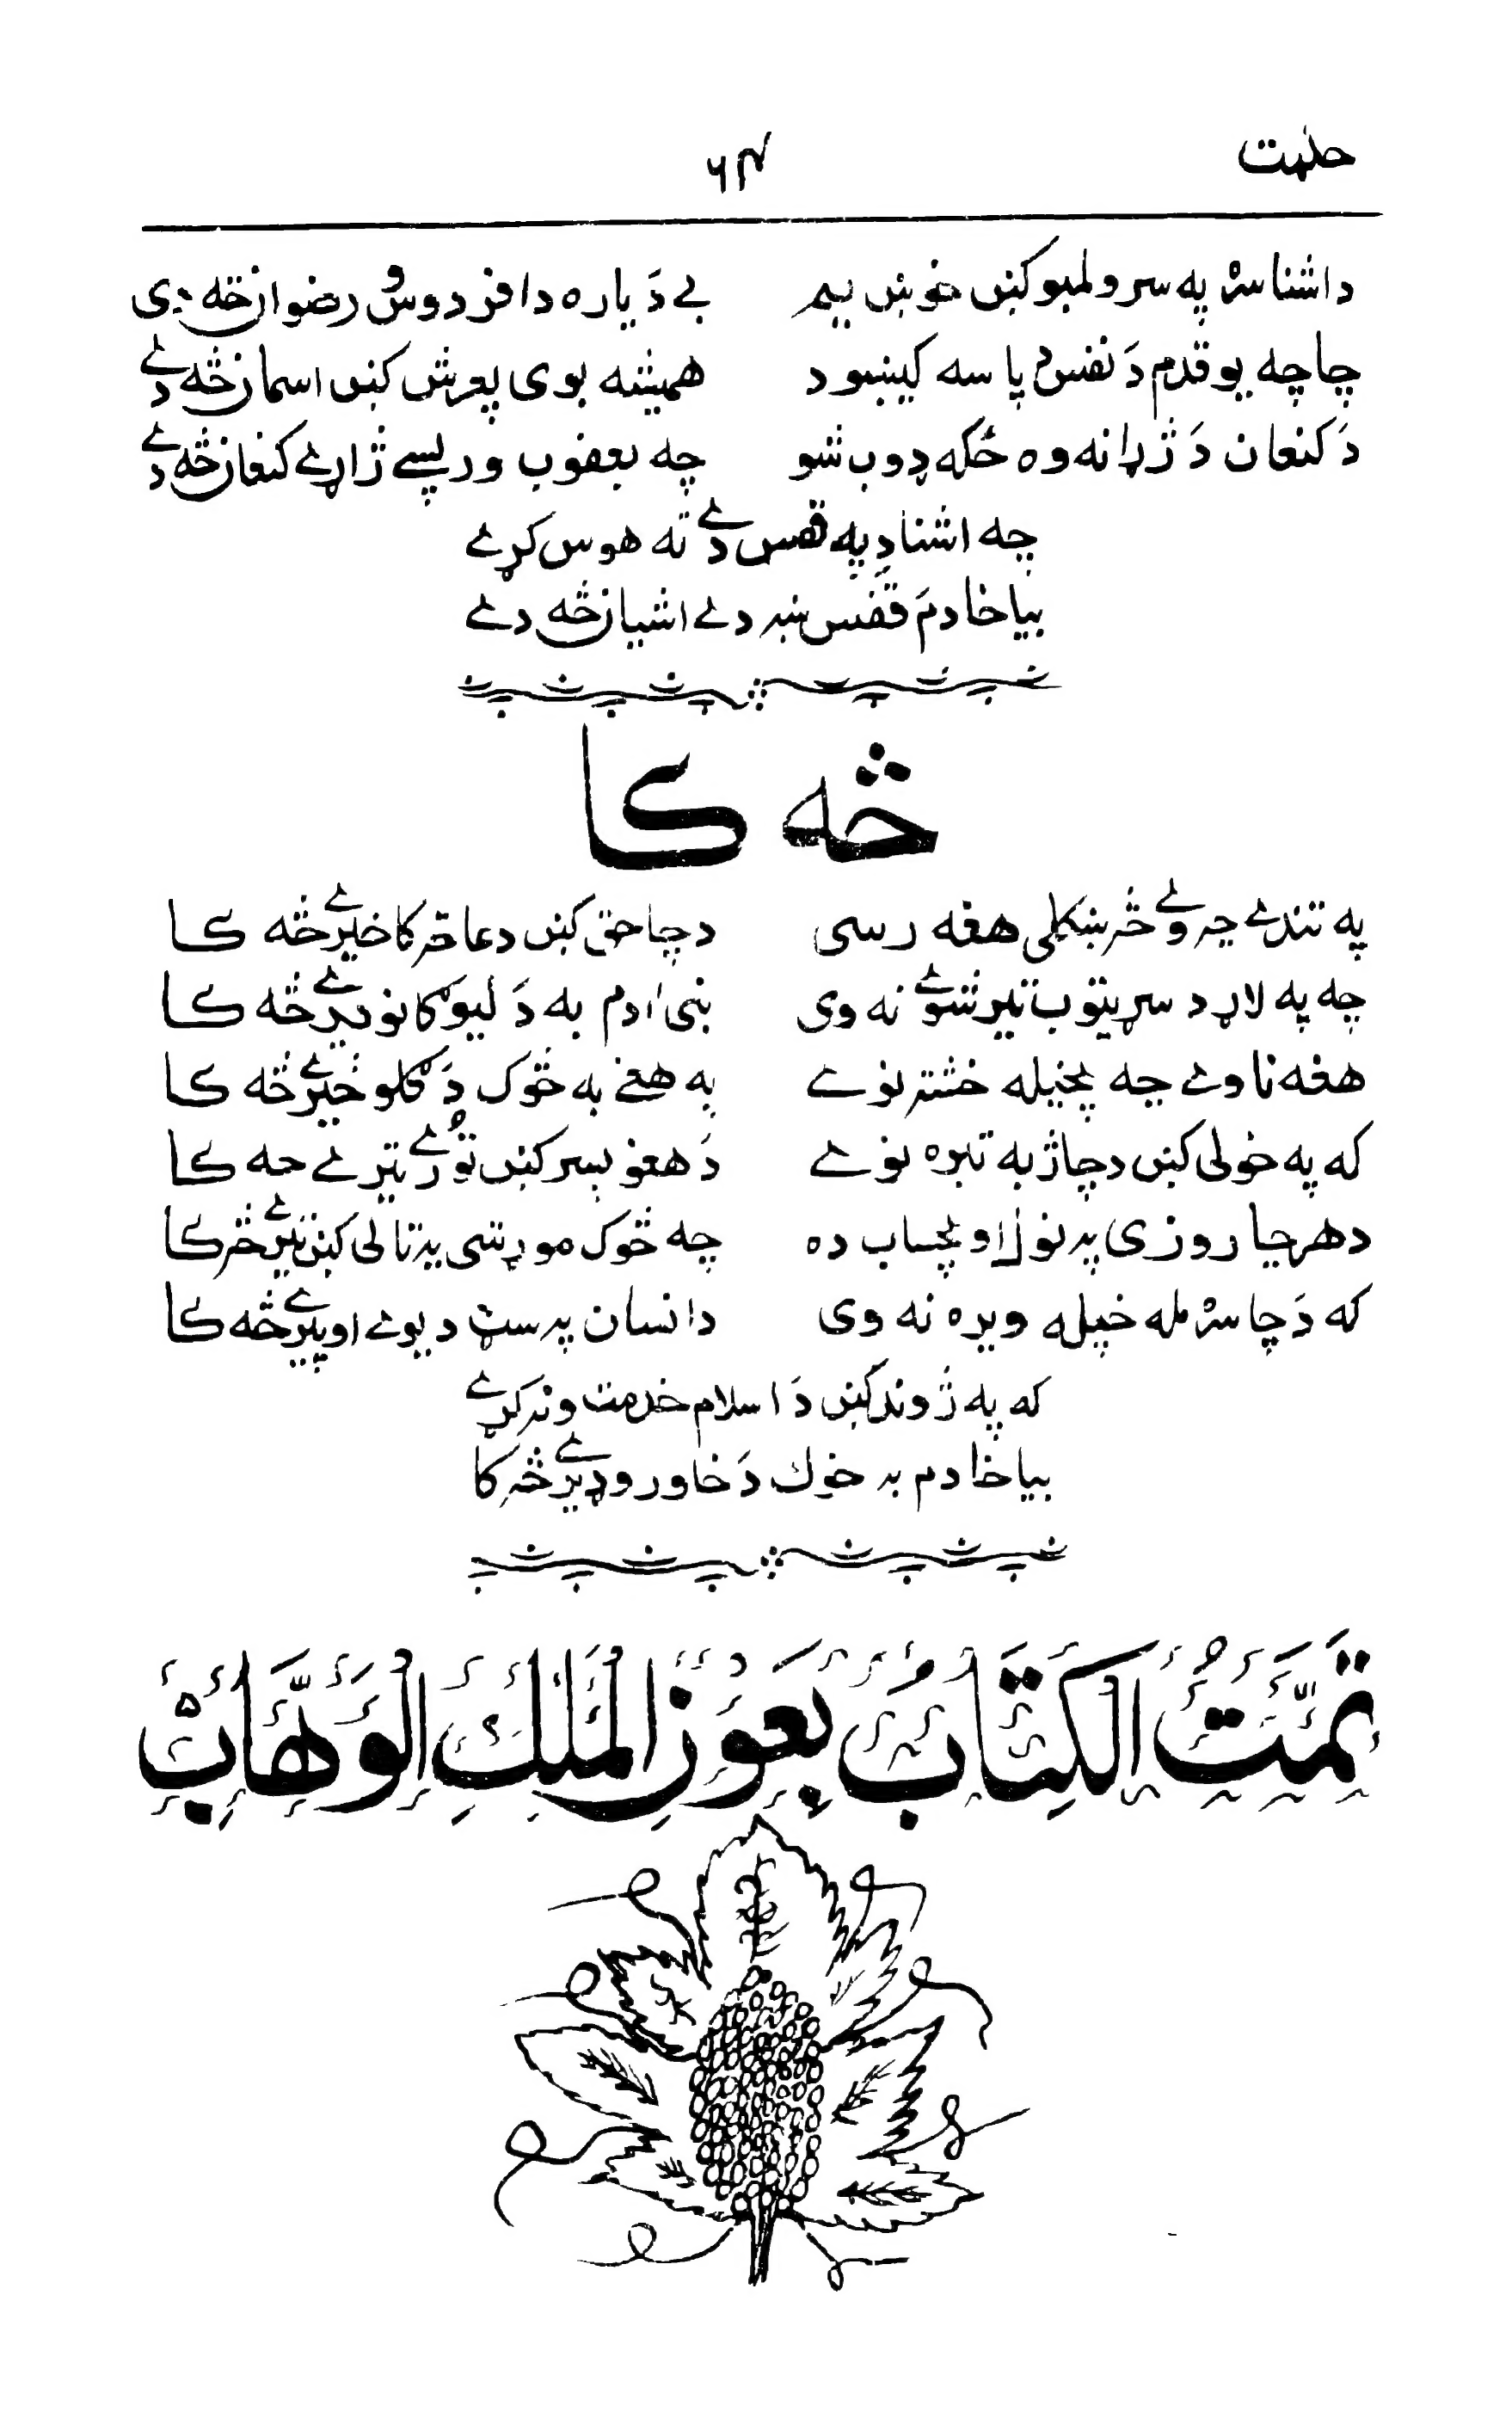 خدمت ۶۴
داشنا سره په سرو لمبو کښ خوښ یم بے دَ یاره دا فردوس و رضوان څه دی
چا چه یو قدم دَ نفس دپاسه کیښود همیشه بوی په عرش کښ اسمان څه دے
دَ کنعان دَ ژړا نه وه ځکه ډوب شو چه یعقوب ورپسے ژاړے کنعان څه دے
چه اشنا دِ په قفس دے ته هوس کړے
بیا خادمَ قفس ښه دے اشیان څه دے
څه کا
په تندے چه وے څه ښکلی هغه رسی د چا حق کښ دعا څه کا خیرے څه کا
چه په لار د سړیتوب تیر شوے نه وی بنی ادم به دَ لیوګانو ډیرے څه کا
هغه ناوے چه پخپله خشته نوے په هغے به څوک دَ ګلو خیرے څه کا
که په خولی کښ د چا ژبه تیره نوے دَ هغو په سر کښ تورے تیرے څه کا
د هر چا روزی په نول او په حساب ده چه څوک موړ شی په تالی کښ تیرے څه کا
که دَ چا سره مله خپله ویره نه وی دانسان په سټ دیوے او پیرے څه کا
که په ژوند کښ دَ اسلام خدمت ونه کړے
بیا خادم به خوک دَ خاورو ډیرے څه کا
تَمَّتُ الکِتَابُ بِعَوْنِ المَلِکِ الوَهَّابْ